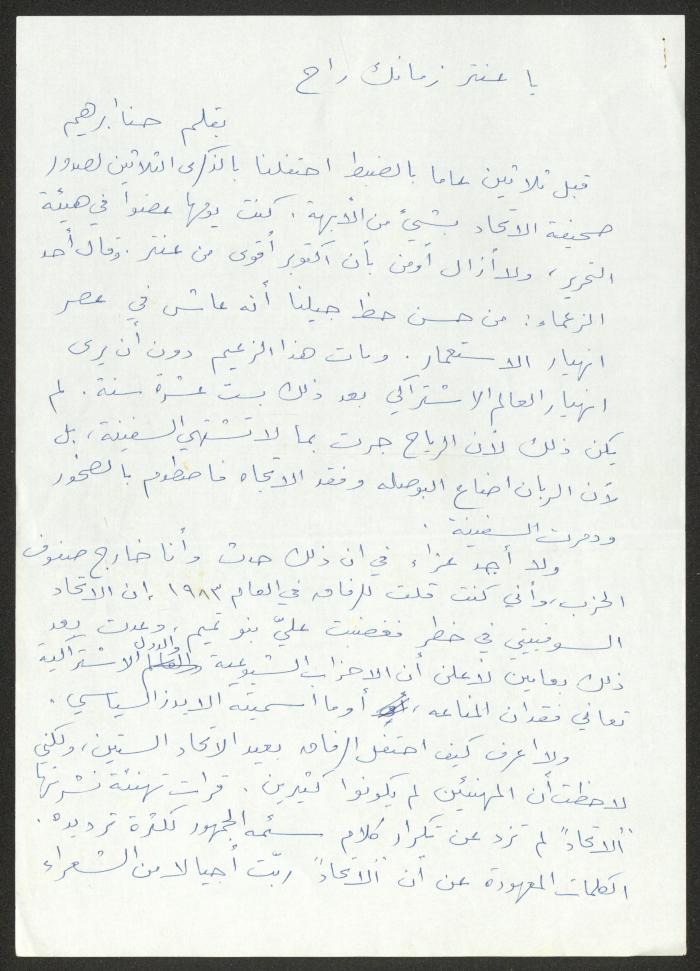 يا عنتر زمانك راح
بقلم حنا ابرهيم
قبل ثلاثين عاما بالضبط احتفلنا بالذكرى الثلاثين لصدور
صحيفة الاتحاد بشيء من الأبهة. كنت يومها عضوا في هيئة
التحرير، ولا أزال أومن بأن اكتوبر أقوى من عنتر. وقال أحد
الزعماء: من حسن حظ جيلنا أنه عاش في عصر
انهيار الاستعمار. ومات هذا الزعيم دون أن يرى
انهيار العالم الاشتراكي بعد ذلك بست عشرة سنة. لم
يكن ذلك لأن الرياح جرت بما لا تشتهي السفينة، بل
لأن الربان اضاع البوصله وفقد الاتجاه فاصطدم بالصخور
ودمرت السفينة.
ولا أجد عزاء في ان ذلك حدث وأنا خارج صفوف
الحزب، وأني كنت قلت للرفاق في العام ١٩٨٣ إن الاتحاد
السوفييتي في خطر فغضبت عليّ بنو تميم، وعدت بعد
ذلك بعامين لأعلن أن الاحزاب الشيوعية والدول الاشتراكية
تعاني فقدان المناعه، أو ما اسميته الايدز السياسي.
ولا اعرف كيف احتفل الرفاق بعيد الاتحاد الستين، ولكني
لاحظت أن المهنئين لم يكونوا كثيرين. قرات تهنئة نشرتها
"الاتحاد" لم تزد عن تكرار كلام سئمه الجمهور لكثرة ترديده.
الكلمات المعهودة عن أن "الاتحاد" ربّت أجيالا من الشعراء